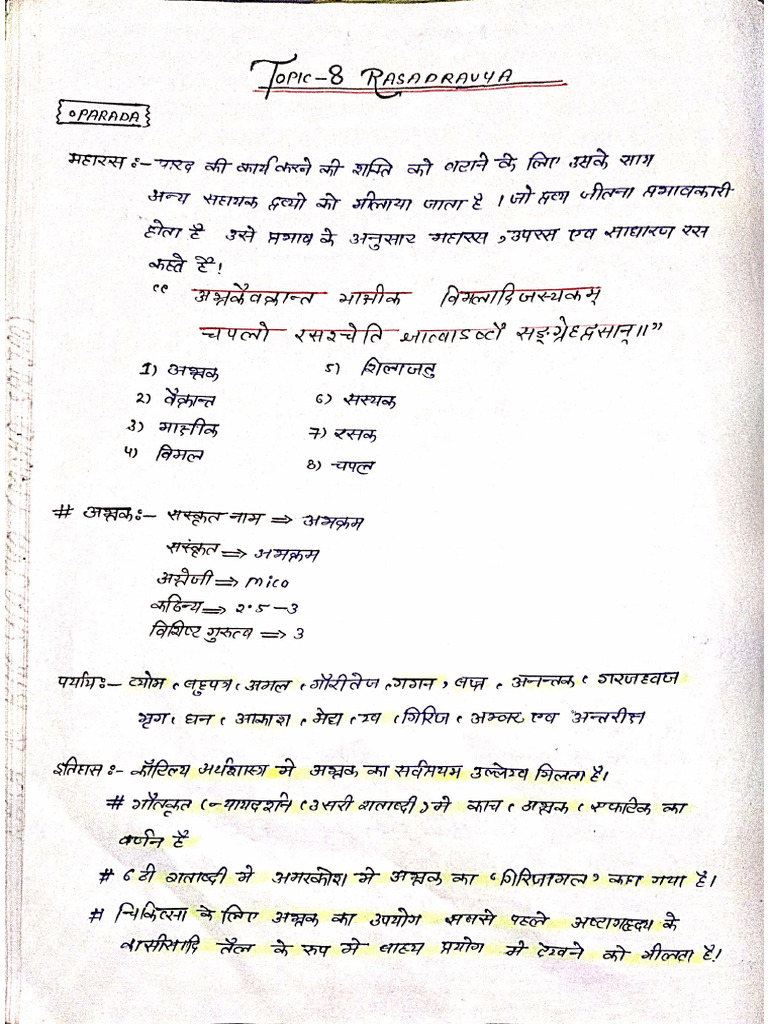 Topic-8 RASADRAVYA
• PARADA
महारस :- पारद की कार्य करने की शक्ति को बढाने के लिए उसके साथ
अन्य सहायक द्रव्यो को मीलाया जाता है। जो द्रव्य जीतना प्रभावकारी
होता है उसे प्रभाव के अनुसार महारस, उपरस एव साधारण रस
कहते है।
“ अभ्रकवैक्रान्त माक्षीक विमलादिजस्यकम्
चपलो रसश्चेति ज्ञात्वाऽष्टौ सङ्ग्रेहद्रसान्॥”
1) अभ्रक 5) शिलाजतु
2) वैक्रान्त 6) सस्यक
3) माक्षीक 7) रसक
4) विमल 8) चपल
# अभ्रक:- संस्कृत नाम ⇒ अभक्रम
संस्कृत ⇒ अभक्रम
अग्रेजी ⇒ mica
कठिन्य ⇒ 2.5-3
विशिष्ट गुरुत्व ⇒ 3
पर्याय:- व्योम, बहुपत्र, अमल, गौरीतेज, गगन, वज्र, अनन्तक, गरजध्वज
भृग, घन, आकाश, मेघ, ख, गिरिज, अम्बर एव अन्तरीक्ष
इतिहास :- कौटिल्य अर्थशास्त्र मे अभ्रक का सर्वप्रथम उल्लेख मिलता है।
# गौतकृत (न्यायदर्शन, उसरी शताब्दी) मे काच, अभ्रक, स्फाटिक का
वर्णन है
# 6 टी शताब्दी मे अमरकोश मे अभ्रक का 'गिरिजामल' कहा गया है।
# चिकित्सा के लिए अभ्रक का उपयोग सबसे पहले अष्टागह्रदय के
कासीसादि तैल के रुप मे बाह्य प्रयोग मे देखने को मीलता है।